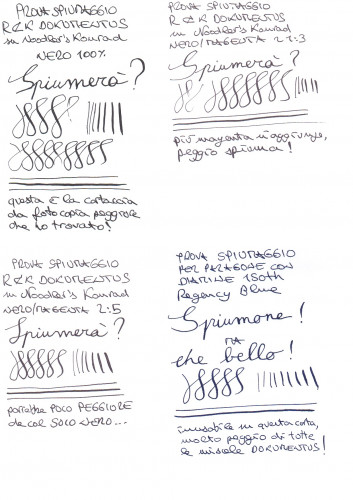 PROVA SPIUMAGGIO
R&K DOKUMENTUS
in Noodler's Konrad
NERO 100%
Spiumerà?
questa è la cartaccia
da fotocopia peggiore
che ho trovato!
PROVA SPIUMAGGIO
R&K DOKUMENTUS
in Noodler's Konrad
NERO/MAGENTA 2:3
Spiumerà?
più magenta si aggiunge,
peggio spiuma!
PROVA SPIUMAGGIO
R&K DOKUMENTUS
in Noodler's Konrad
NERO/MAGENTA 2:5
Spiumerà?
parrebbe POCO PEGGIORE
che col SOLO NERO...
PROVA SPIUMAGGIO
PER PARAGONE CON
DIAMINE 150th
Regency Blue
Spiumone!
MA
che bello!
inusabile su questa carta,
molto peggio di tutte
le miscele DOKUMENTUS!